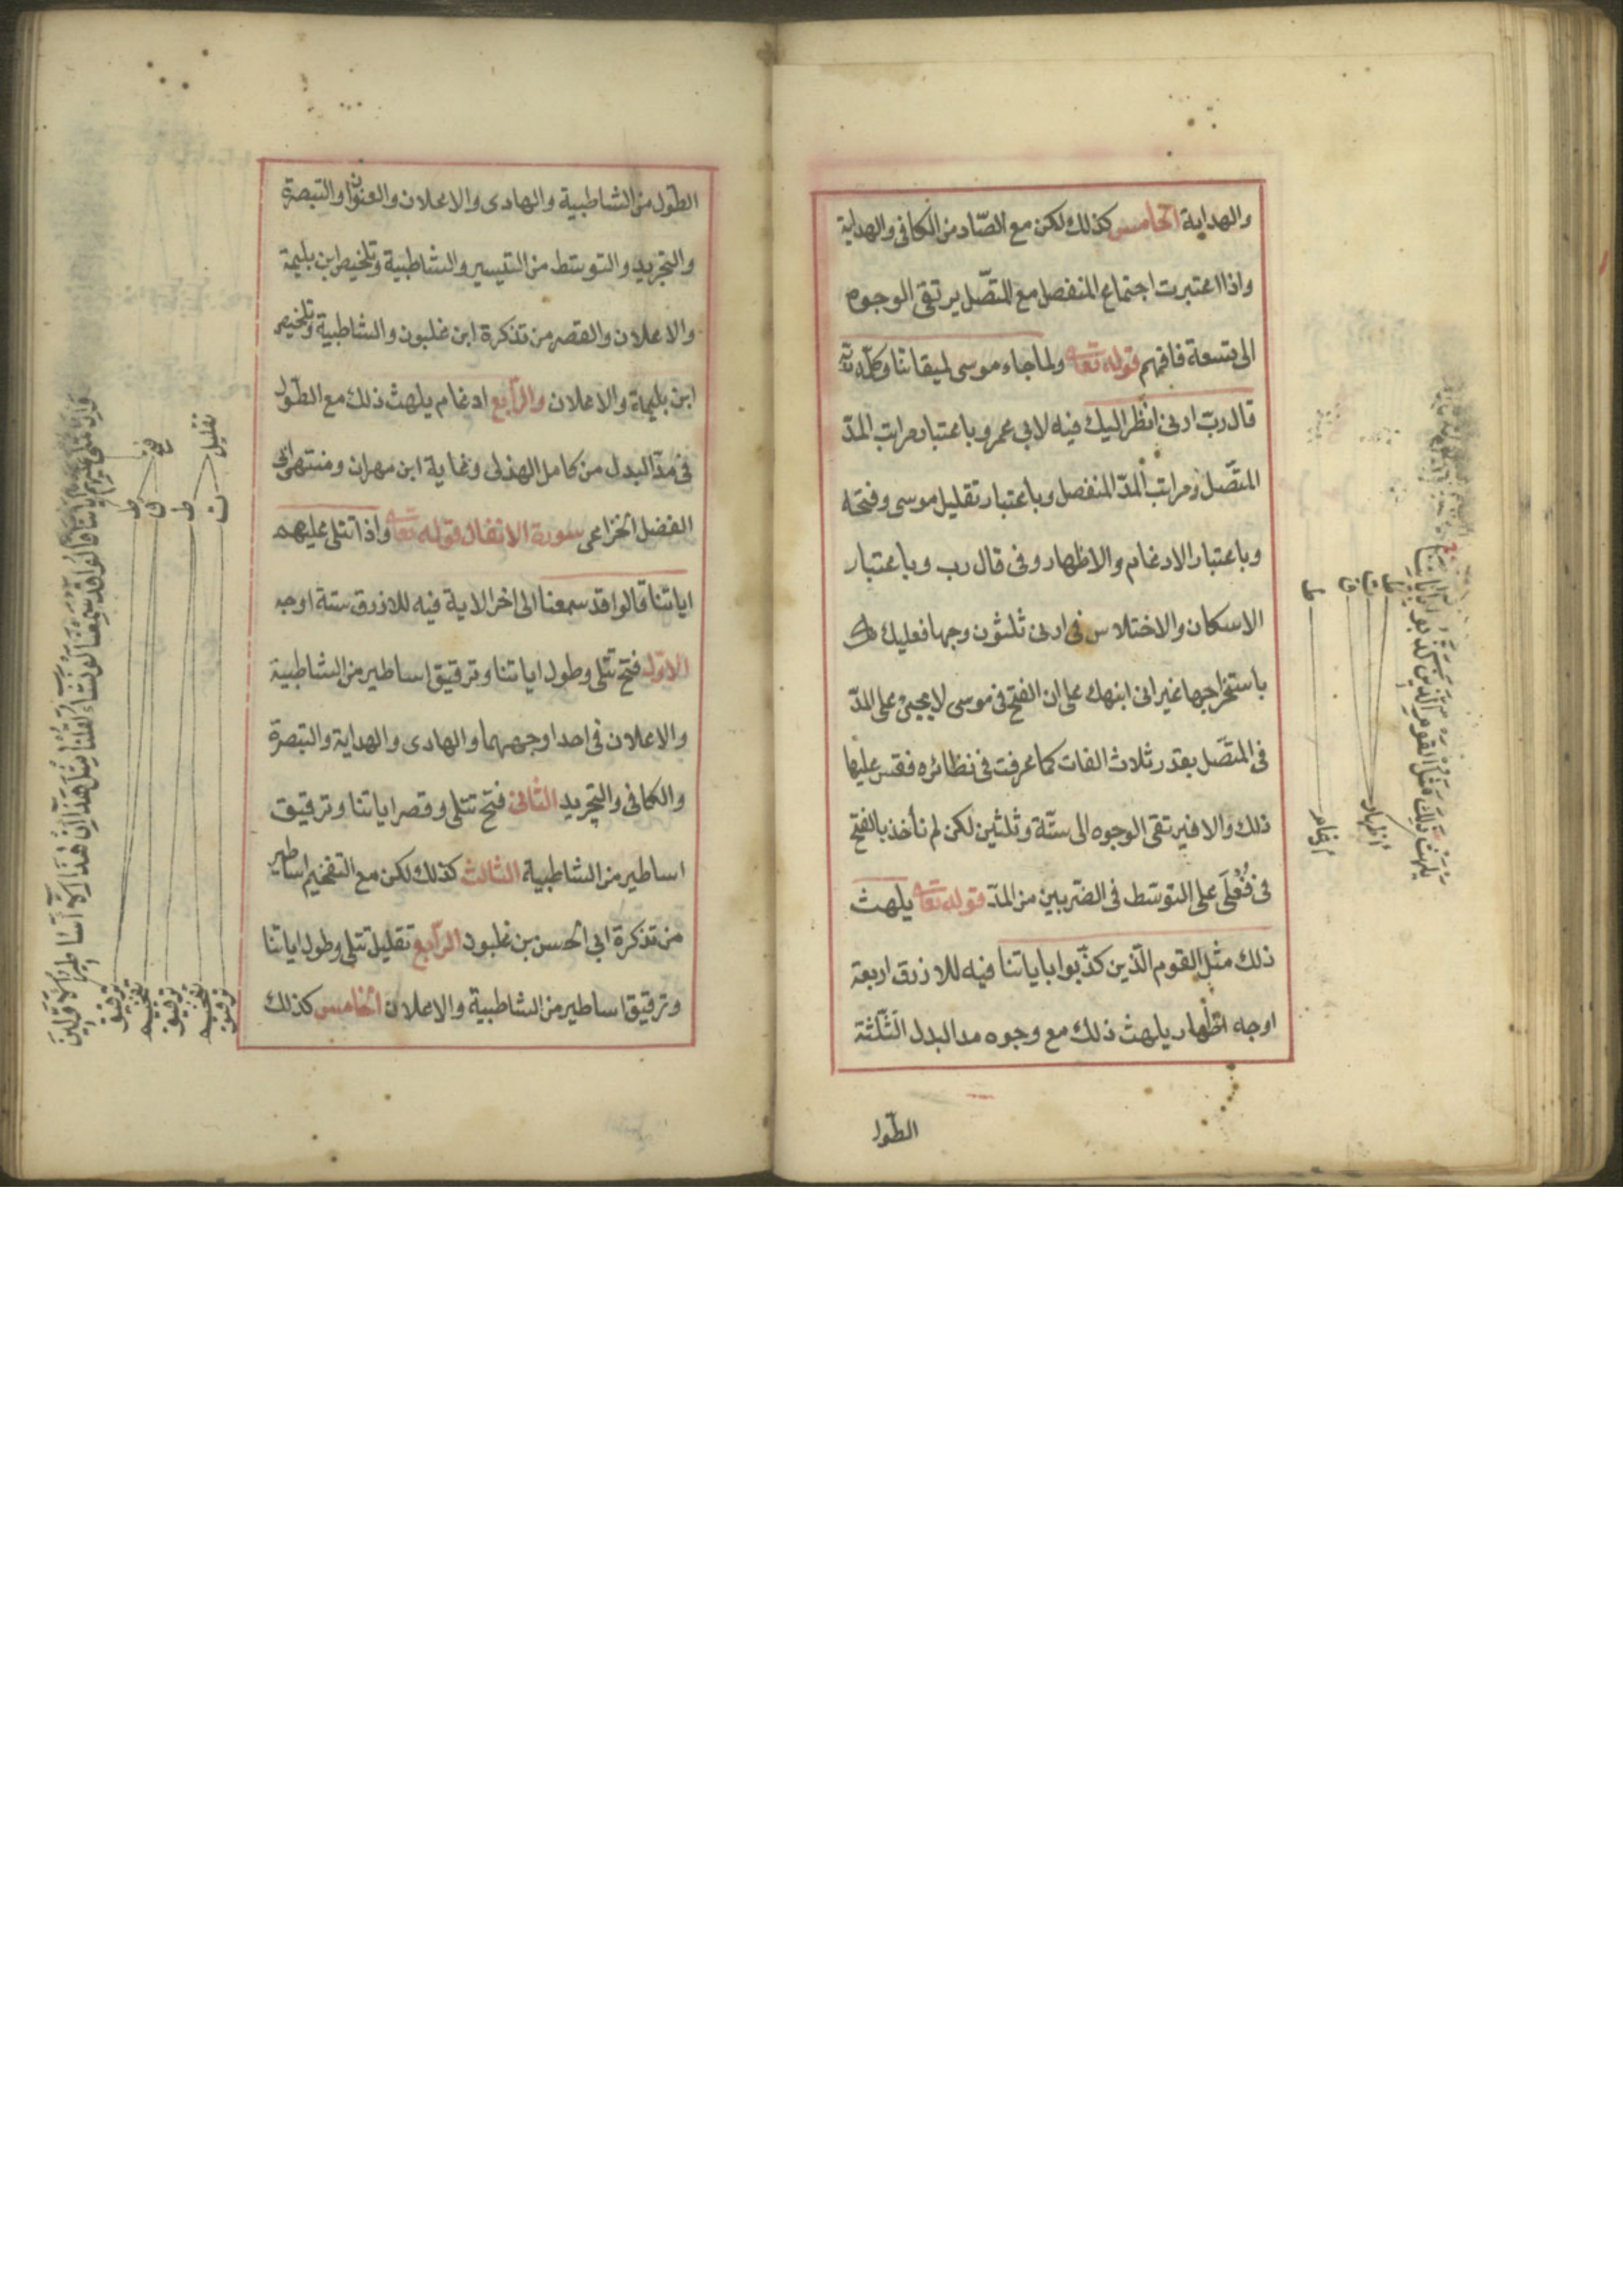 والهداية الخامس كذلك لكن مع الصّاد من الكافى والهداية
واذا اعتبرت اجتماع المنفصل مع المتّصل يرتقى الوجوه
الى تسعة فافهم قوله تعا ولما جاء موسى لميقاتنا وكلّمه ربّه
قال ربّ ارنى انظر اليك فيه لابى عمرو باعتبار مراتب المدّ
المتّصل ومراتب المدّ المنفصل وباعتبار تقليل موسى وفتحه
وباعتبار الادغام والاظهار وفى قال رب وباعتبار
الاسكان والاختلاس فى ارنى ثلثون وجها فعليك
باستخراجها غير انى انبهك على ان الفتح فى موسى لا يجئ على المدّ
فى المتّصل بقدر ثلاث الفات كما عرفت فى نظائره فقس عليها
ذلك والا فيرتقى الوجوه الى ستّة وثلثين لكن لم نأخذ بالفتح
فى فُعْلَى على التوسّط فى الضربين من المدّ قوله تعا يلهث
ذلك مثل القوم الّذين كذّبوا باياتنا فيه للازرق اربعة
اوجه اظهار يلهث ذلك مع وجوه مد البدل الثّلثة
الطّول
يَلْهَثْ ذَلِكَ مَثَلُ الْقَوْمِ الَّذِينَ كَذَّبُوا بِآيَاتِنَا
ط
ق
ط
اظهار
ادغام
الطّول من الشاطبية والهادى والاعلان والعنوان والتبصرة
والتجريد والتوسّط من التيسير والشاطبية وتلخيص ابن بليمة
والاعلان والقصر من تذكرة ابن غلبون والشاطبية وتلخيص
ابن بليمة والاعلان والرّابع ادغام يلهث ذلك مع الطّول
فى مدّ البدل من كامل الهذلى وغاية ابن مهران ومنتهى ابى
الفضل الخزاعى سورة الانفال قوله تعا واذا تتلى عليهم
اياتنا قالوا قد سمعنا الى اخر الاية فيه للازرق ستة اوجه
الاوّل فتح تتلى وطول اياتنا وترقيق اساطير من الشاطبية
والاعلان فى احد اوجههما والهادى والهداية والتبصرة
والكافى والتجريد الثانى فتح تتلى وقصر اياتنا وترقيق
اساطير من الشاطبية الثالث كذلك لكن مع التفخيم اساطير
من تذكرة ابى الحسن بن غلبون الرّابع تقليل تتلى وطول اياتنا
وترقيق اساطير من الشاطبية والاعلان الخامس كذلك
وَإِذَا تُتْلَى عَلَيْهِمْ آيَاتُنَا قَالُوا قَدْ سَمِعْنَا لَوْ نَشَاءُ لَقُلْنَا مِثْلَ هَذَا إِنْ هَذَا إِلَّا أَسَاطِيرُ الْأَوَّلِينَ
فتح
تقليل
ط
ق
ط
ت
ترقيق
تفخيم
ترقيق
تفخيم
ترقيق